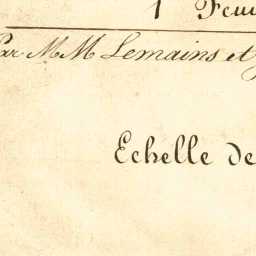 1 Feui
Par M M Lemains et
Echelle de